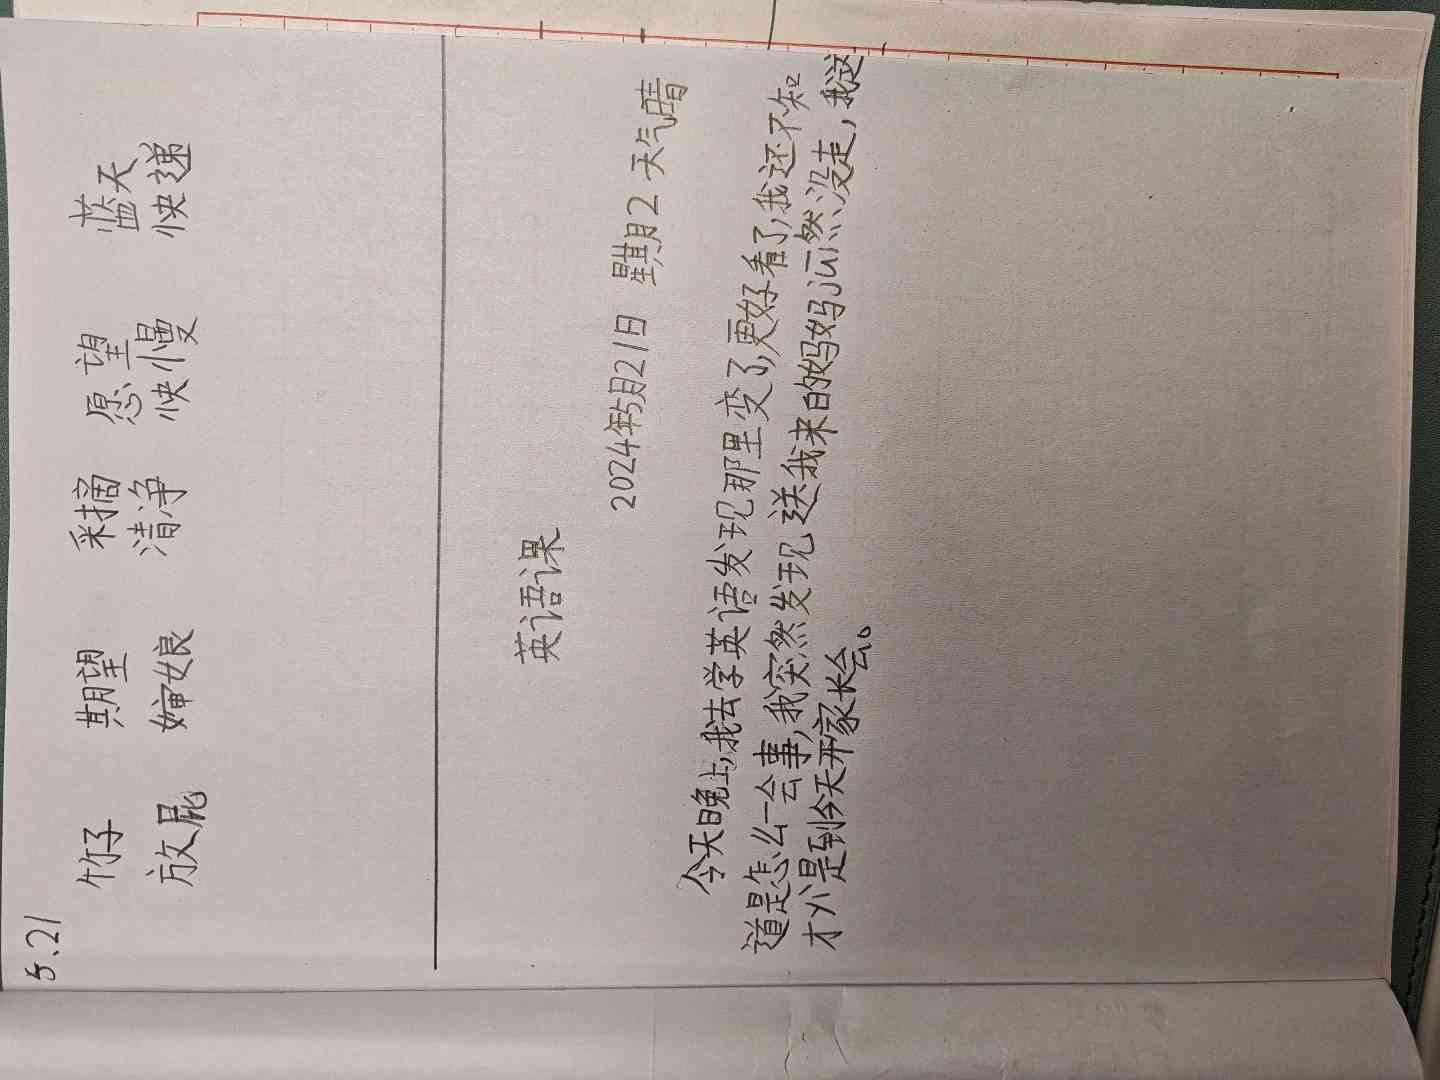 5.21
竹子 期望 采摘 愿望 蓝天
放屁 婶娘 清净 快慢 快递
英语课
2024年5月21日 星期2 天气晴
今天晚上,我去学英语发现那里变了,更好看了,我还不知
道是怎么一会事,我突然发现送我来的妈妈jū然没走,我这
才yì是到今天开家长会。